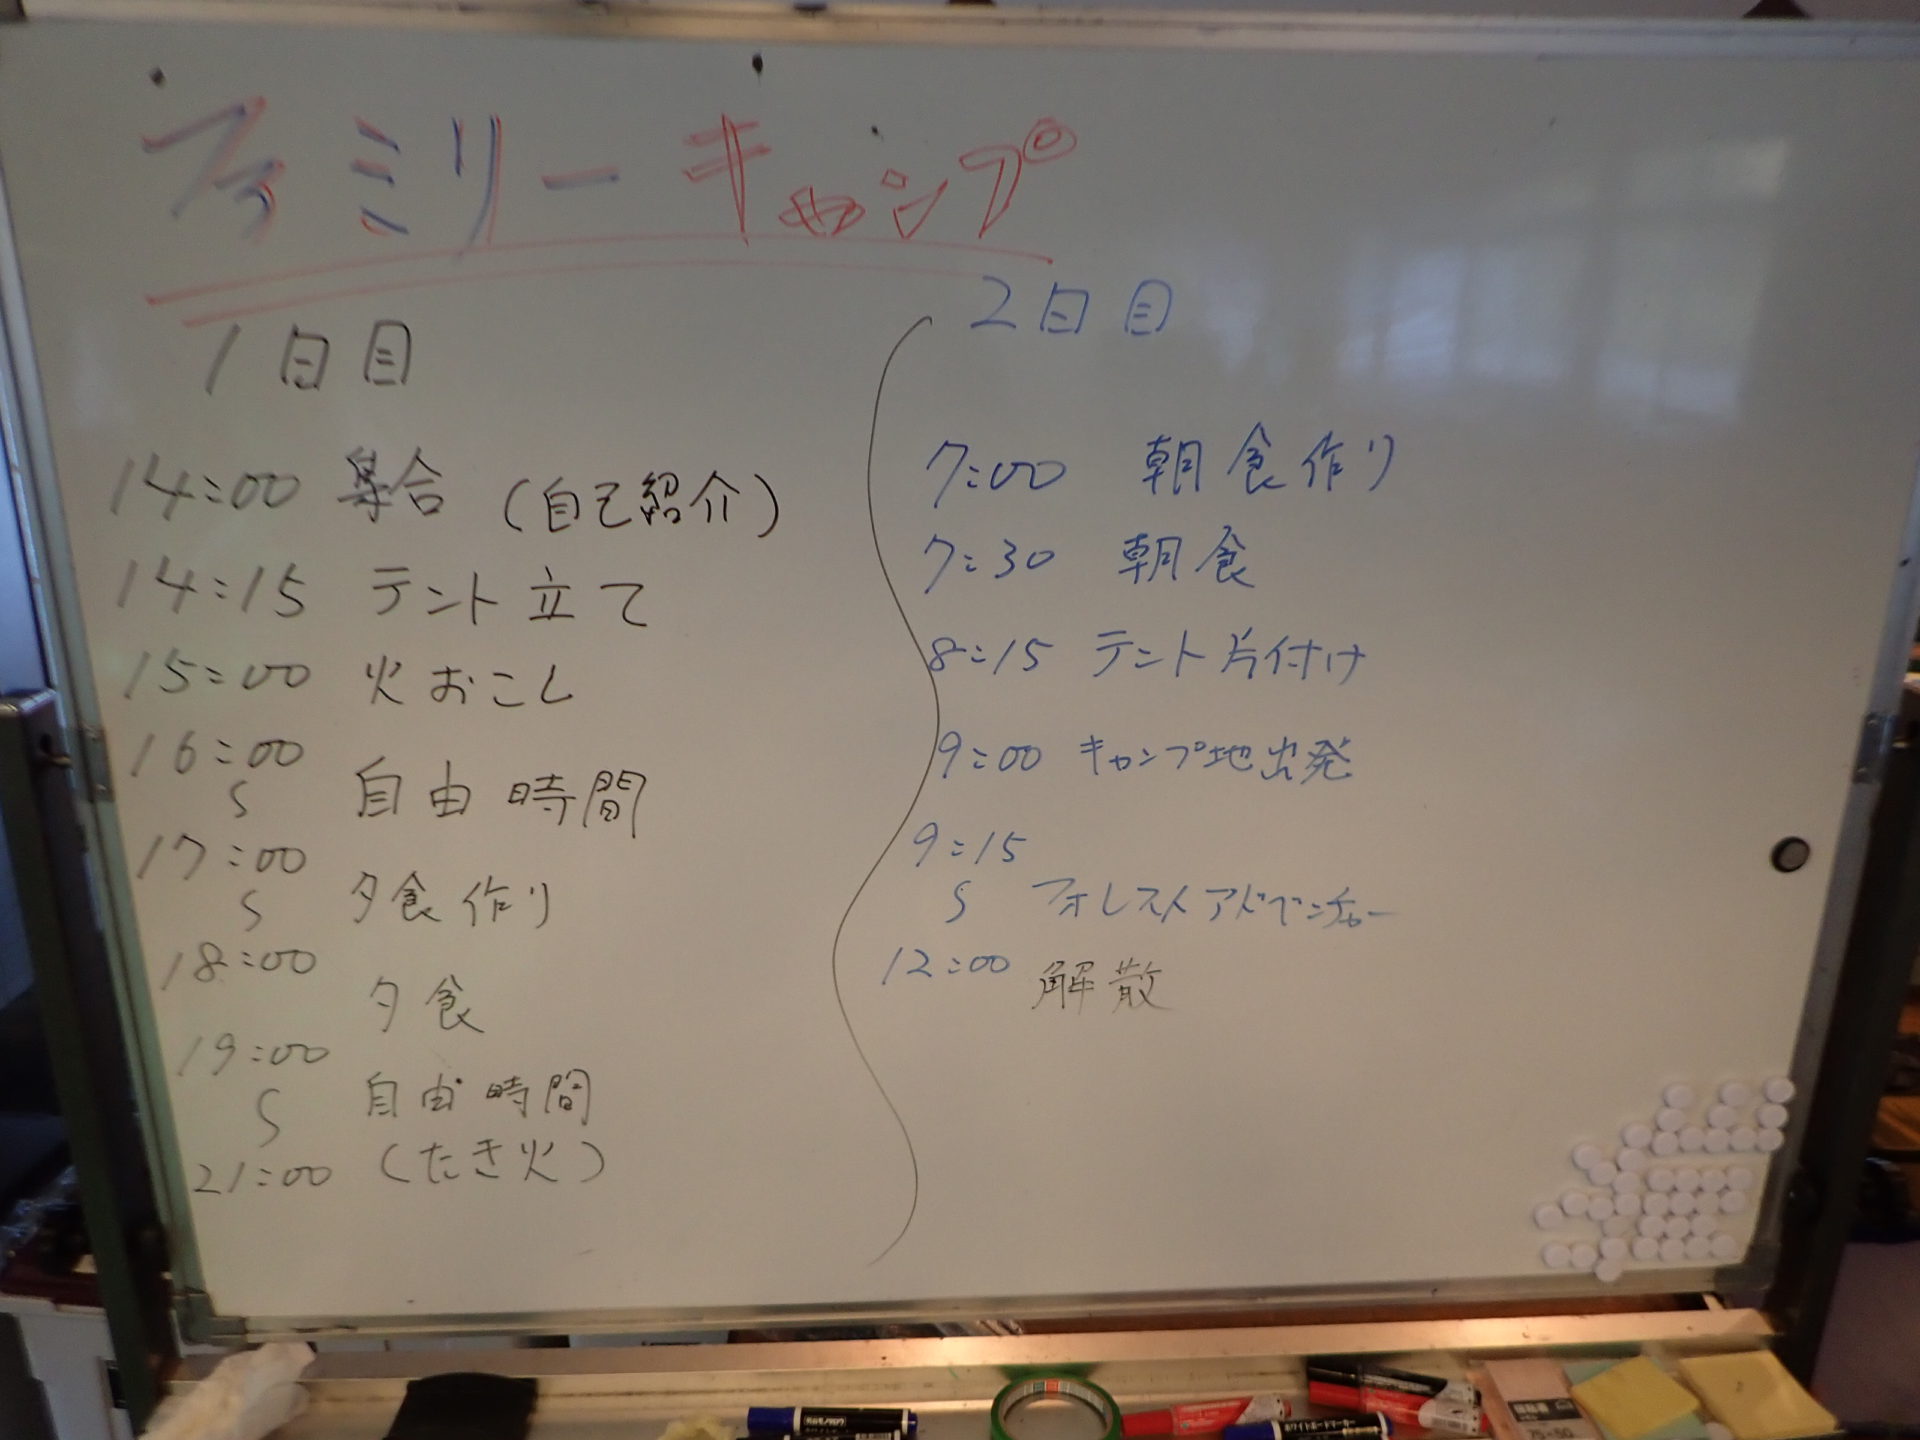 ファミリーキャンプ
1日目
14:00 集合 (自己紹介)
14:15 テント立て
15:00 火おこし
16:00
S 自由時間
17:00
S 夕食作り
18:00
夕食
19:00
S 自由時間
21:00 (たき火)
2日目
7:00 朝食作り
7:30 朝食
8:15 テント片付け
9:00 キャンプ地出発
9:15
S フォレストアドベンチャー
12:00 解散
ホワイトボードマーカー
75×50